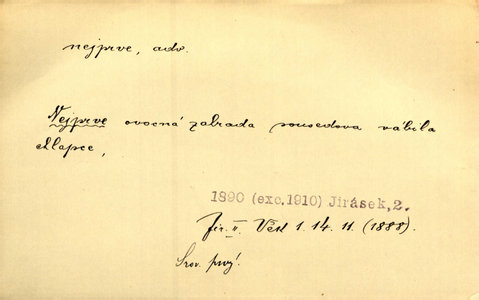 nejprve, adv.
Nejprve ovocná zahrada sousedova vábila
chlapce,
1890 (exc.1910) Jirásek,2.
Jir. II. Věk 1. 14. 11. (1888).
Srov. prvý.